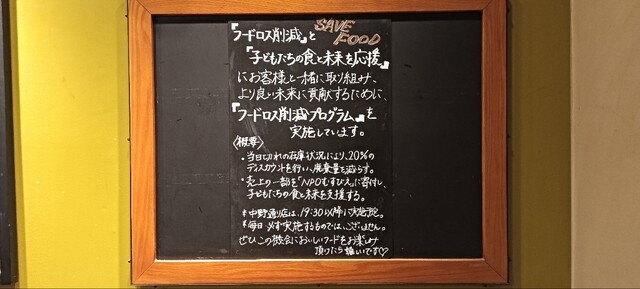 『フードロス削減』と
SAVE
FOOD
『子どもたちの食と未来を応援』
にお客様と一緒に取り組み、
より良い未来に貢献するために、
『フードロス削減プログラム』を
実施しています。
〈概要〉
・当日切れの在庫状況により、20%の
ディスカウントを行い、廃棄量を減らす。
・売上の一部を「NPOむすびえ」に寄付し、
子どもたちの食と未来を支援する。
*中野通り店は、19:30以降に実施予定。
*毎日必ず実施するものではございません。
ぜひこの機会においしいフードをお楽しみ
頂けたら嬉しいです♡